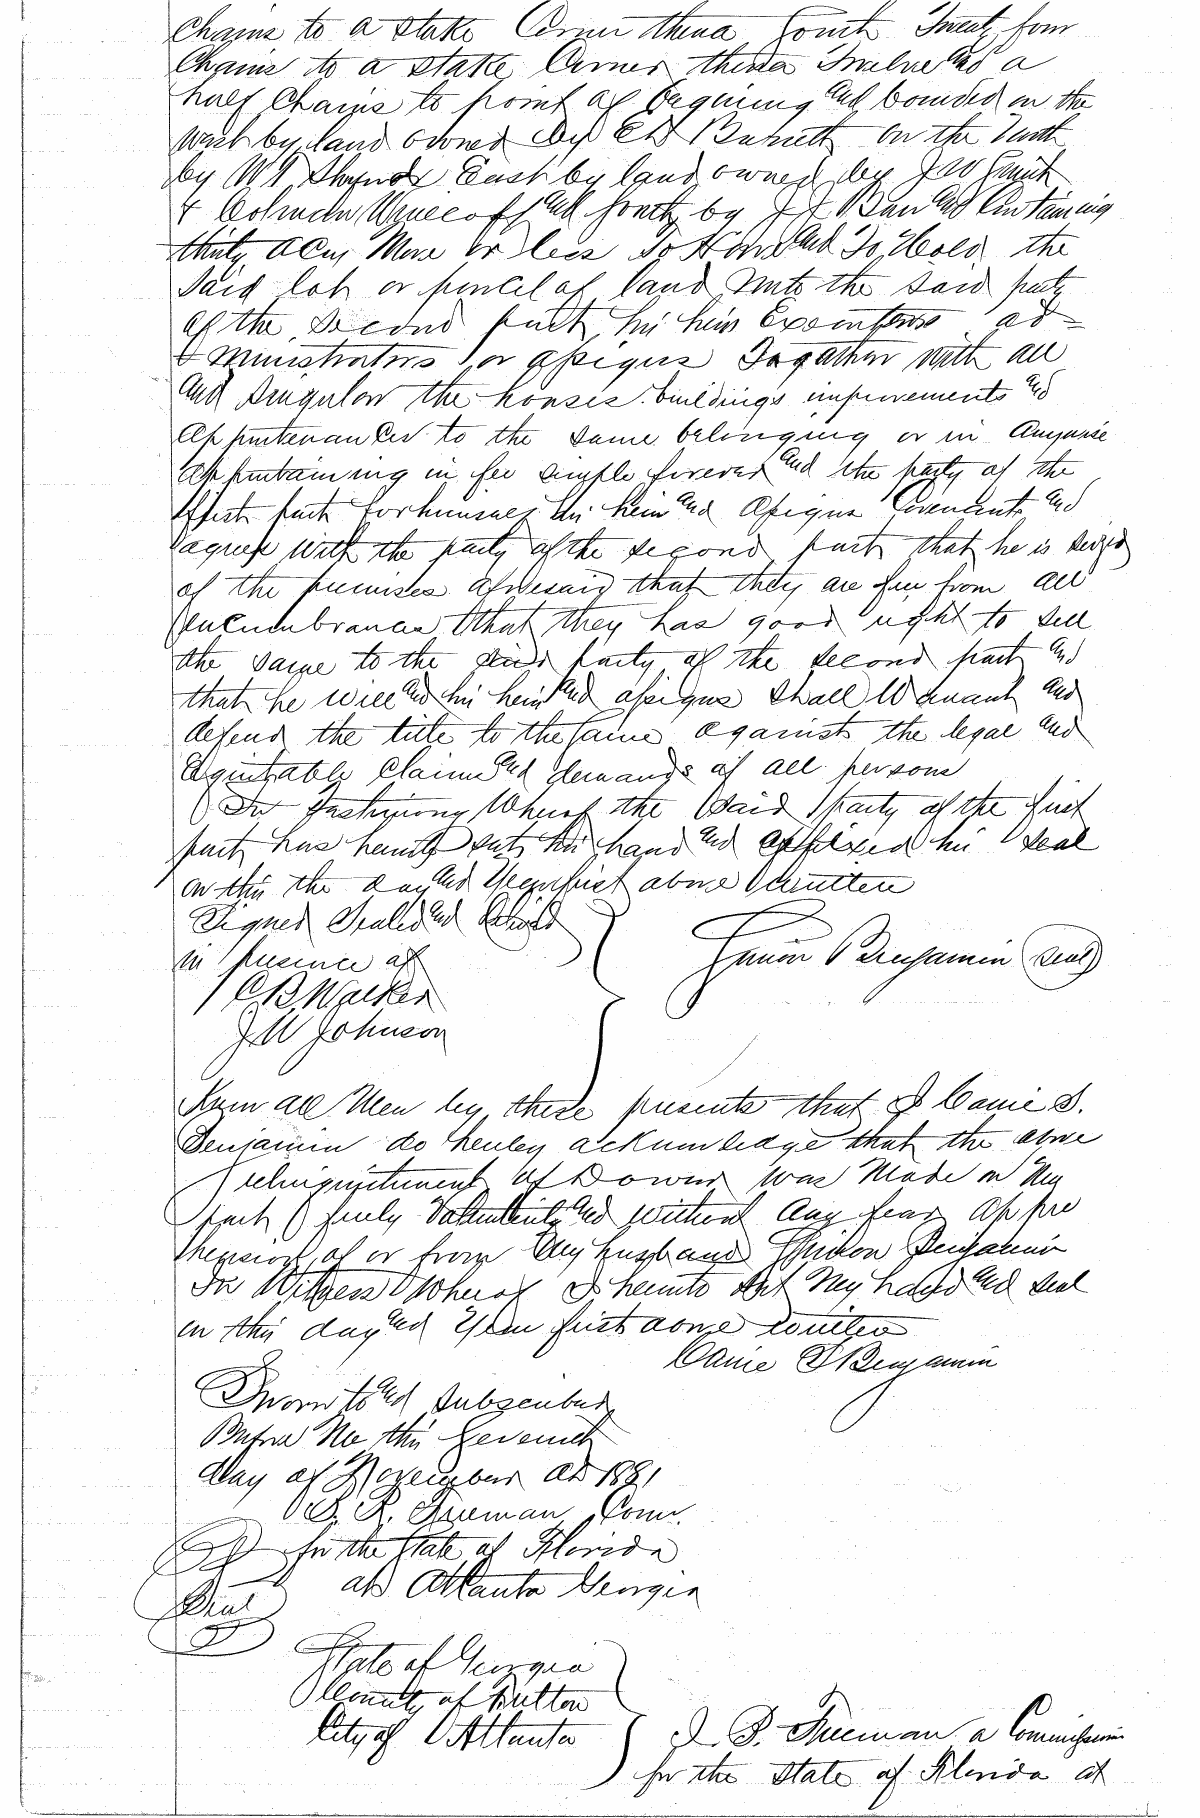 Chains to a stake Corner thence South Twenty four
Chains to a stake Corner thence Twelve and a
half Chains to point of begining and bounded on the
West by land owned by Ed Barrett on the North
by W S East by land owned by J W Smith
& and South by J J and Containing
thirty acres More or less To Have and To Hold the
Said lot or parcel of land unto the said party
of the second part his heirs Executors ad-
ministrators or assigns Together with all
and Singular the houses buildings improvements and
appurtenances to the same belonging or in Anywise
appertaining in fee simple forever and the party of the
first part for himself his heirs and assigns Covenants and
agrees with the party of the second part that he is seized
of the premises aforesaid that they are free from all
encumbrances that they has good right to sell
the same to the said party of the second part and
that he will and his heirs and assigns shall Warrant and
defend the title to the same against the legal and
Equitable Claims and demands of all persons
In Testimony Whereof the Said party of the first
part has hereunto sets his hand and affixed his Seal
on this the day and Year first above written
Signed Sealed and
in presence of
Benjamin (Seal)
C B Walker
J W Johnson
Know all Men by these presents that I Carrie S.
Benjamin do hereby acknowledge that the above
relinquishment of Dower was Made on My
part freely Voluntarily and without Any fear Appre
hension of or from My husband Benjamin
In Witness Whereof I hereunto Set My hand and seal
on this day and Year first above written
Carrie S Benjamin
Sworn to and Subscribed
Before Me this Seventh
day of November AD 1881
Freeman Comr.
for the State of Florida
at Atlanta Georgia
Seal
State of Georgia
County of Fulton
City of Atlanta
I Freeman a Commissioner
for the State of Florida at